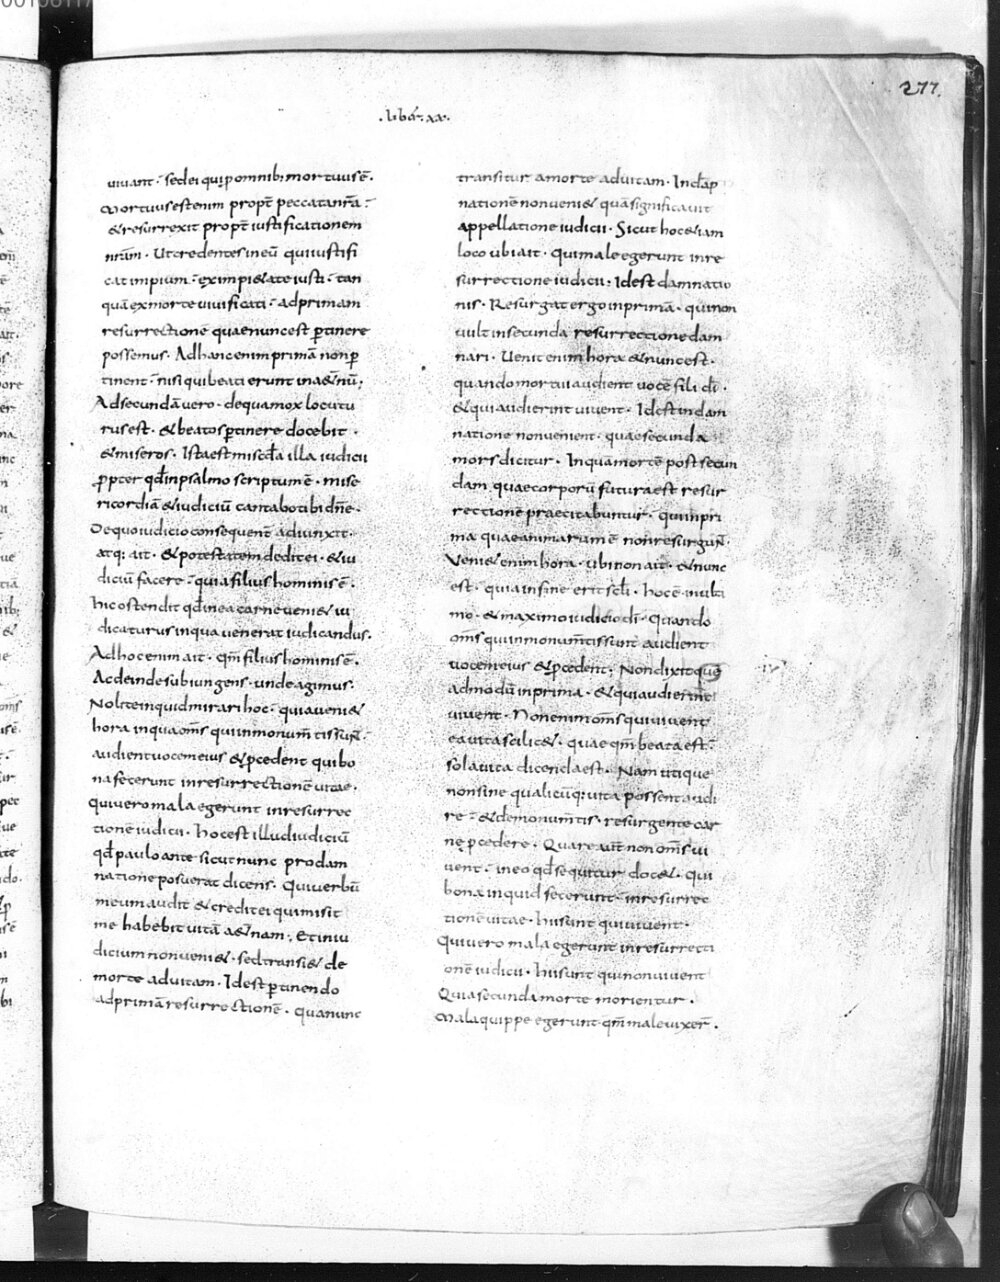 277.
.liber.xx.
uiuant. sed ei qui p omnib; mortuus ē.
Mortuus est enim propt̄ peccata nr̄a.
& resurrexit propt̄ iustificationem
nr̄am. Ut credentes in eū qui iustifi
cat impium. ex impi&ate iusti. tan
quā ex morte uiuificati. ad primam
resurrectionē quae nunc est ptinere
possemus. Ad hanc enim primā non p
tinent. nisi qui beati erunt in a&nū;
Ad secundā uero. de qua mox locutu
rus est. & beatos ptinere docebit.
& miseros. Ista est misc̄da illa iudicii
ppter qđ in psalmo scriptum ē. mise
ricordiā & iudiciū cantabo tibi dn̄e.
De quo iudicio consequent̄ adiunxit.
atq; ait. & potestatem dedit ei. & iu
diciū facere. quia filius hominis ē.
hic ostendit qđ in ea carne ueni& iu
dicaturus in qua uenerat iudicandus.
Ad hoc enim ait. qm̄ filius hominis ē.
Ac deinde subiungens. unde agimus.
Nolite inquid mirari hoc. quia ueni&
hora in qua oms̄ qui in monum̄tis sunt̄.
audient uocem eius & pcedent qui bo
na fecerunt in resurrectionē uitae.
qui uero mala egerunt in resurrec
tionē iudicii. hoc est illud iudiciū
qđ paulo ante sicut nunc pro dam
natione posuerat dicens. Qui uerbū
meum audit & credit ei qui misit
me habebit uitā a&nam; Et in iu
dicium non ueni&. sed transi& de
morte ad uitam. Id est ptinendo
ad primā resurrectionē. qua nunc
transitur a morte ad uitam. In dāp
nationē non ueni& quā significauit
appellatione iudicii. Sicut hoc &iam
loco ubi ait. Qui male egerunt in re
surrectione iudicii; Id est damnatio
nis. Resurgat ergo in prima. qui non
uult in secunda resurrectione dam
nari. Uenit enim hora & nunc est.
quando mortui audient uocē fili dī.
& qui audierint uiuent. Id est in dam
natione non uenient. quae secunda
mors dicitur. In quā mortē post secun
dam quae corporū futura est resur
rectionē praecitabuntur. qui in pri
ma quae animarum ē non resurgunt̄.
Veni& enim hora. ubi non ait. & nunc
est. quia in fine erit scłi. hoc ē in ulti
mo. & maximo iudicio dī. Quando
oms̄ qui in monum̄tis sunt audient
uocem eius & pcedent. Non dixit quē
admodū in prima. & qui audierint
uiuent. Non enim oms̄ qui uiuent
ea uita scilic&. quae qm̄ beata est.
sola uita dicenda est. Nam utique
non sine qualicūq; uita possent audi
re. & de monum̄tis. resurgente car
ne pcedere. Quare aut̄ non oms̄ ui
uent. in eo qđ sequitur doc&. Qui
bona inquid fecerunt. in resurrec
tionē uitae. hii sunt qui uiuent.
Qui uero mala egerunt in resurrecti
onē iudicii. hii sunt qui non uiuent
Quia secunda morte morientur.
Mala quippe egerunt. qm̄ male uixer̄.